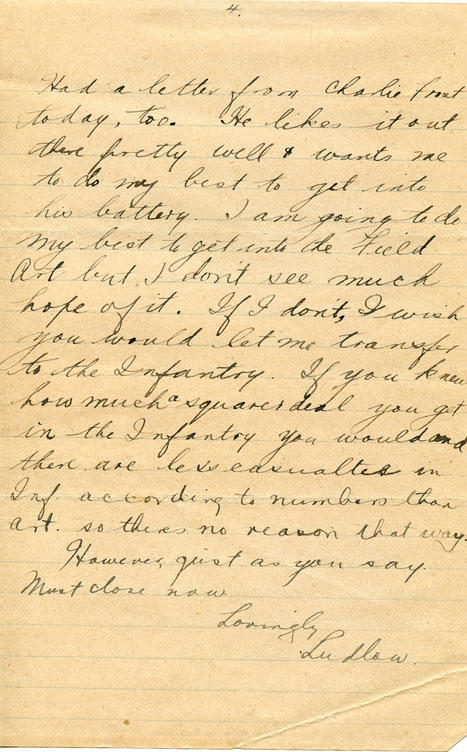 4.
Had a letter from Charlie Frost
today, too. He likes it out
there pretty well & wants me
to do my best to get into
his battery. I am going to do
my best to get into the Field
Art but I don't see much
hope of it. If I dont, I wish
you would let me transfer
to the Infantry. If you knew
how much a squarer deal you get
in the Infantry you would and
there are less casualties in
Inf. according to numbers than
art. so theres no reason that way.
However, just as you say.
Must close now
Lovingly
Ludlow.